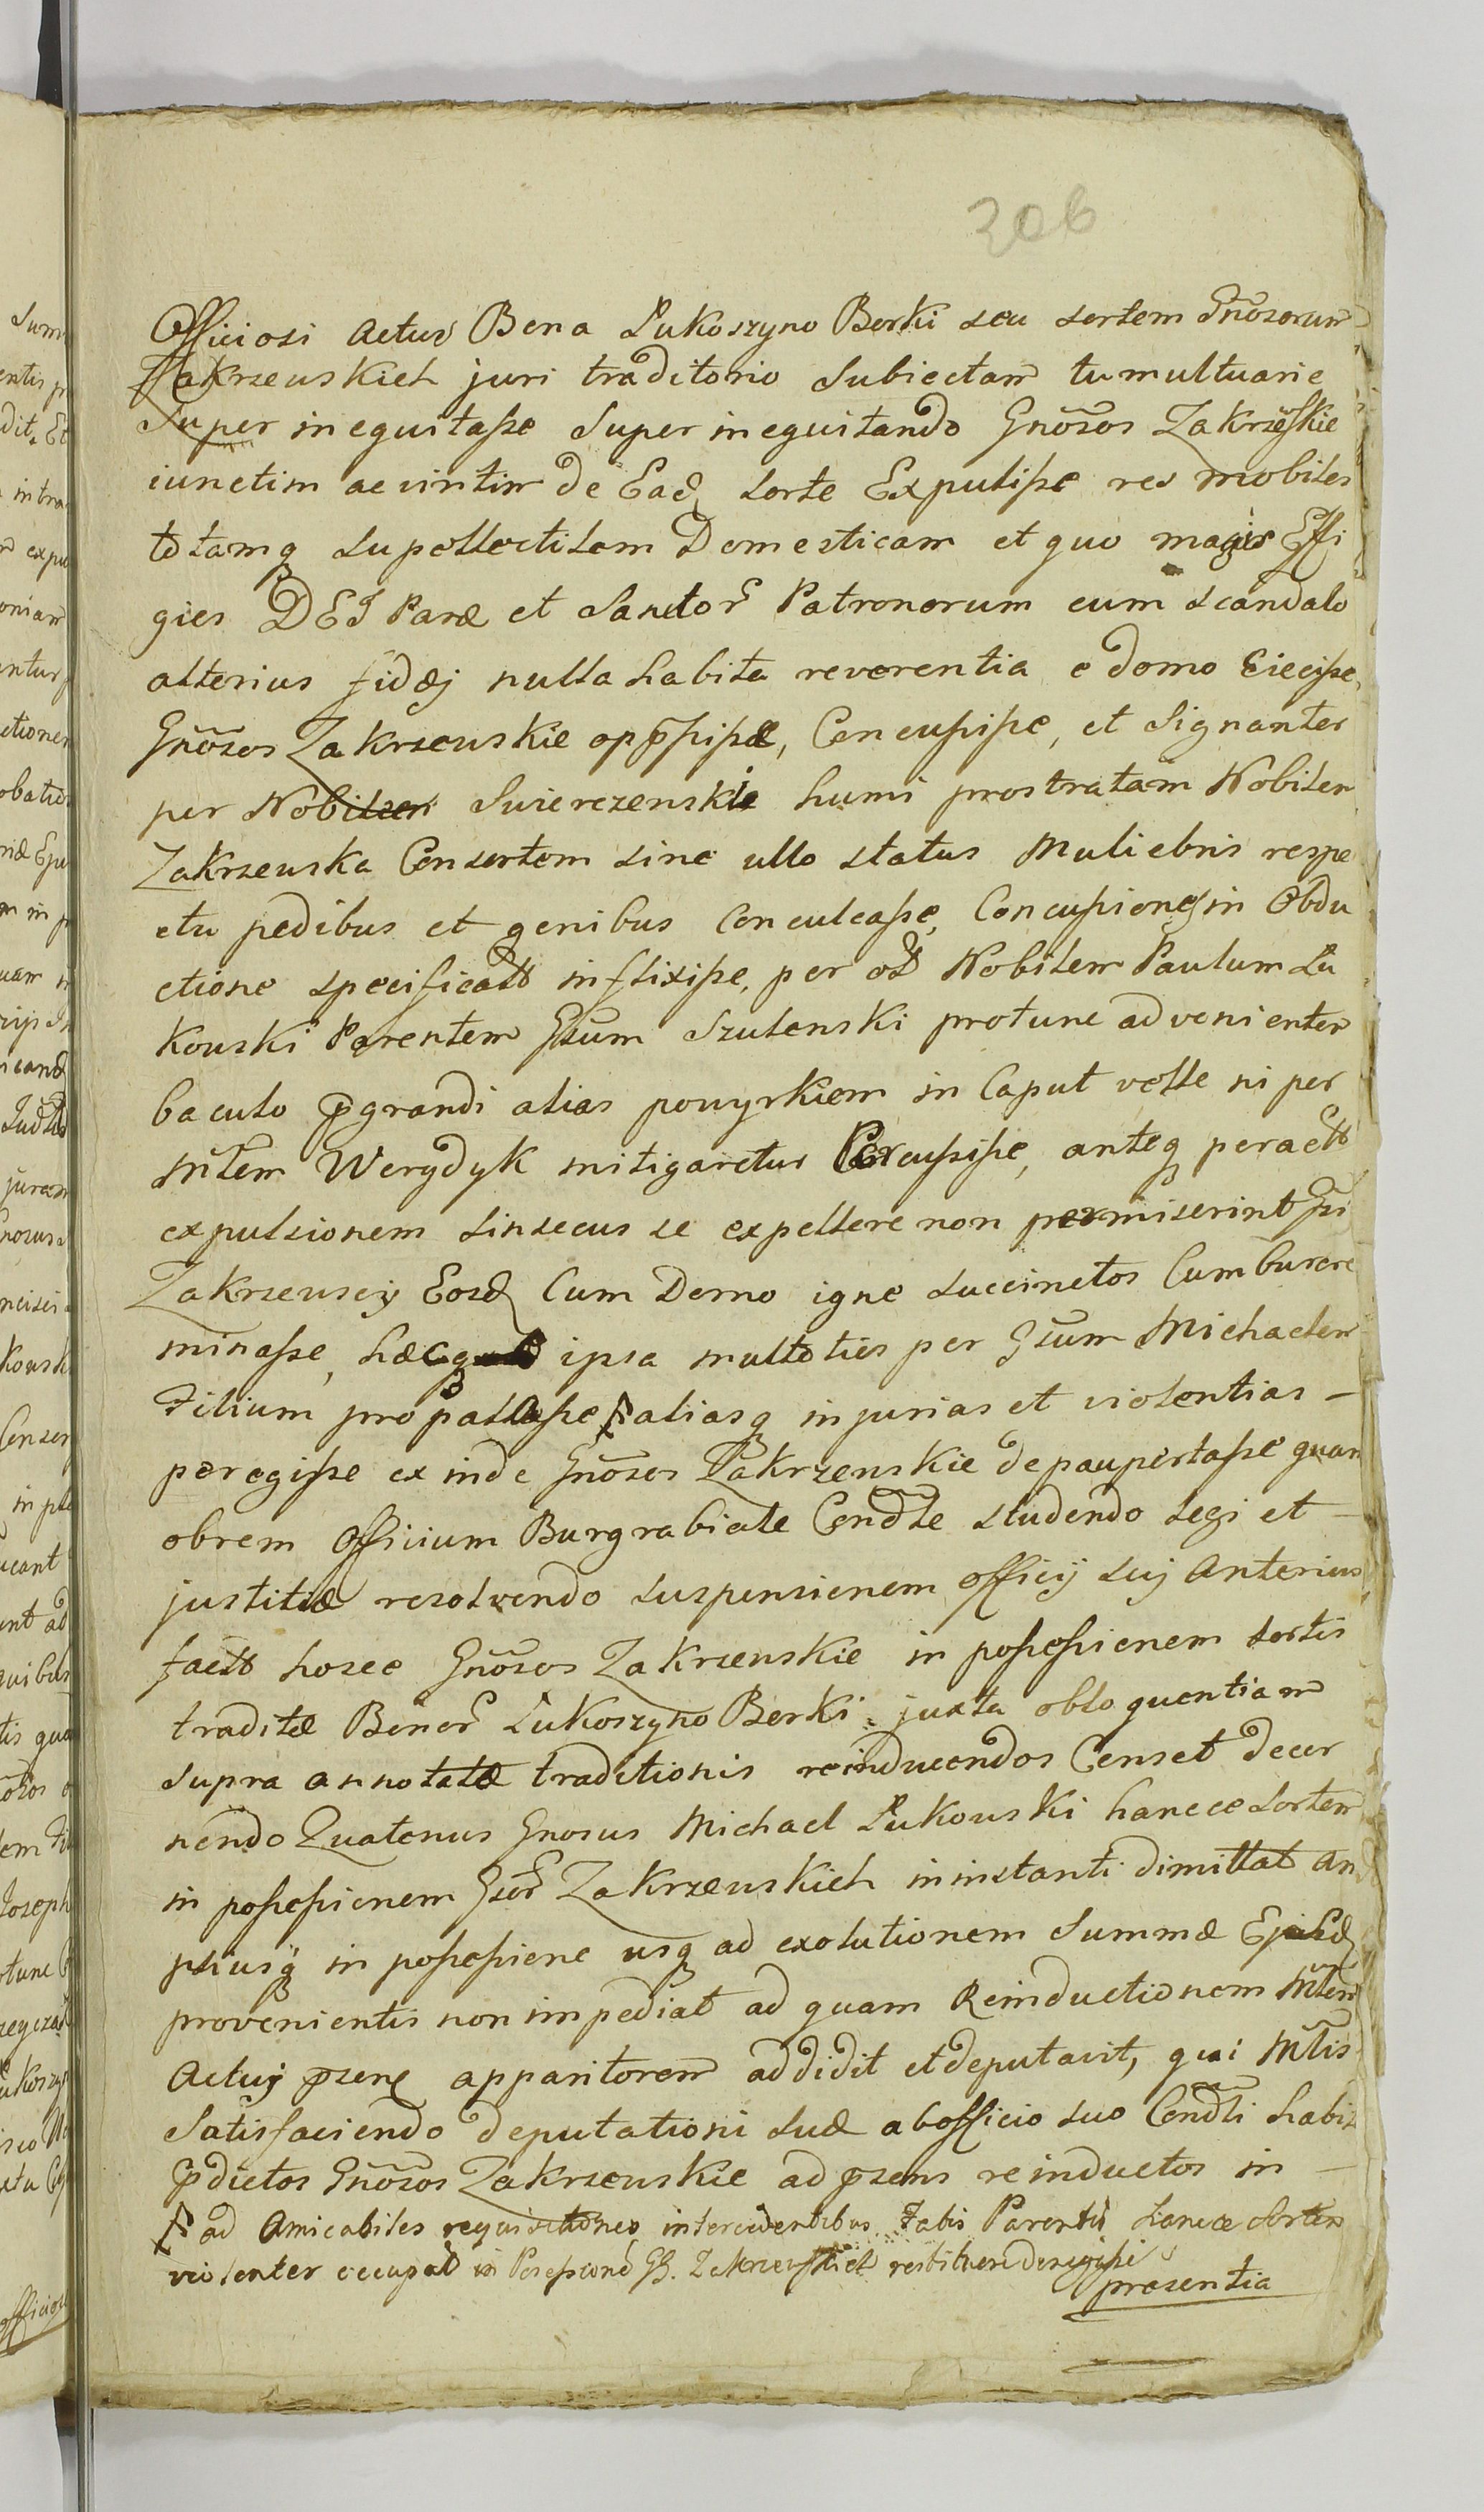 306
Officiosi Actus Bona Łukoszyno Borki seu sortem Gnõsorum
Zakrzewskich juri traditorio Subiectam tumultuarie
Super inequitasse Super inequitando Gnõsos Zakrzeskie
iunctim ac viritim de Eadq sorte Expulisse res mobiles
totamq supellectilem Domesticam et quo magis Effi
gies DEI Paræ et Sanctor Patronorum cum scandalo
alterius fidej nulla habita reverentia e domo Eiecisse,
Gnõsos Zakrzewskie oppssisse, Concussisse, et Signanter
per Swierczenskie humi prostratam Nobilem
Zakrzewska Consortem sine ullo status Muliebris respe
ctu pedibus et genibus Conculcasse, Concussiones in Obdu
ctione specificatt inflixisse, per Nobilem Paulum Łu
kowski Parentem Gsum Szulenski protunc advenientem
baculo pgrandi alias powyrkiem in Caput velle ni per
Mltem Werydyk mitigaretur Percussisse, anteq peractt
expulsionem sinsecus se expellere non permiserint Gsi
Zakrzewscy Eosd Cum Domo igne succinctos Cumburere
minasse, hæcq ipsa multoties per Gsum Michaelem
Filium propalasse ꝉ aliasq injurias et violentias –
peregisse ex inde Gnõsos Zakrzewskie depaupertasse quam
obrem Officium Burgrabiale Cendle studendo legi et –
justitiæ resolvendo suspensionem officij sui Anterius
factt hosce Gnõsos Zakrzewskie in possessionem sortis
traditæ Bonor Łukoszyno Borki juxta obloquentiam
supra annotatæ traditionis reinducendos Censet decer
nendo Quatenus Gnosus Michael Łukowski hancce sortem
in possessionem Gsor Zakrzewskich in instanti dimittat am
pliusq in possessione usq ad exolutionem Summæ Ejusd
provenientis non impediat ad quam Reinductionem Mltem
Actuj psenc apparitorem addidit et deputavit, qui Mltis
Satisfaciendo deputationi suæ ab officio suo Cendli habi
pdictos Gnõsos Zakrzewskie ad psens reinductos in –
ꝉ ad Amicabiles requisitiones intercedentibus Parentis hancce sortem
violenter occupat in Possessione GG. Zakrzewskich restituere
præsentia